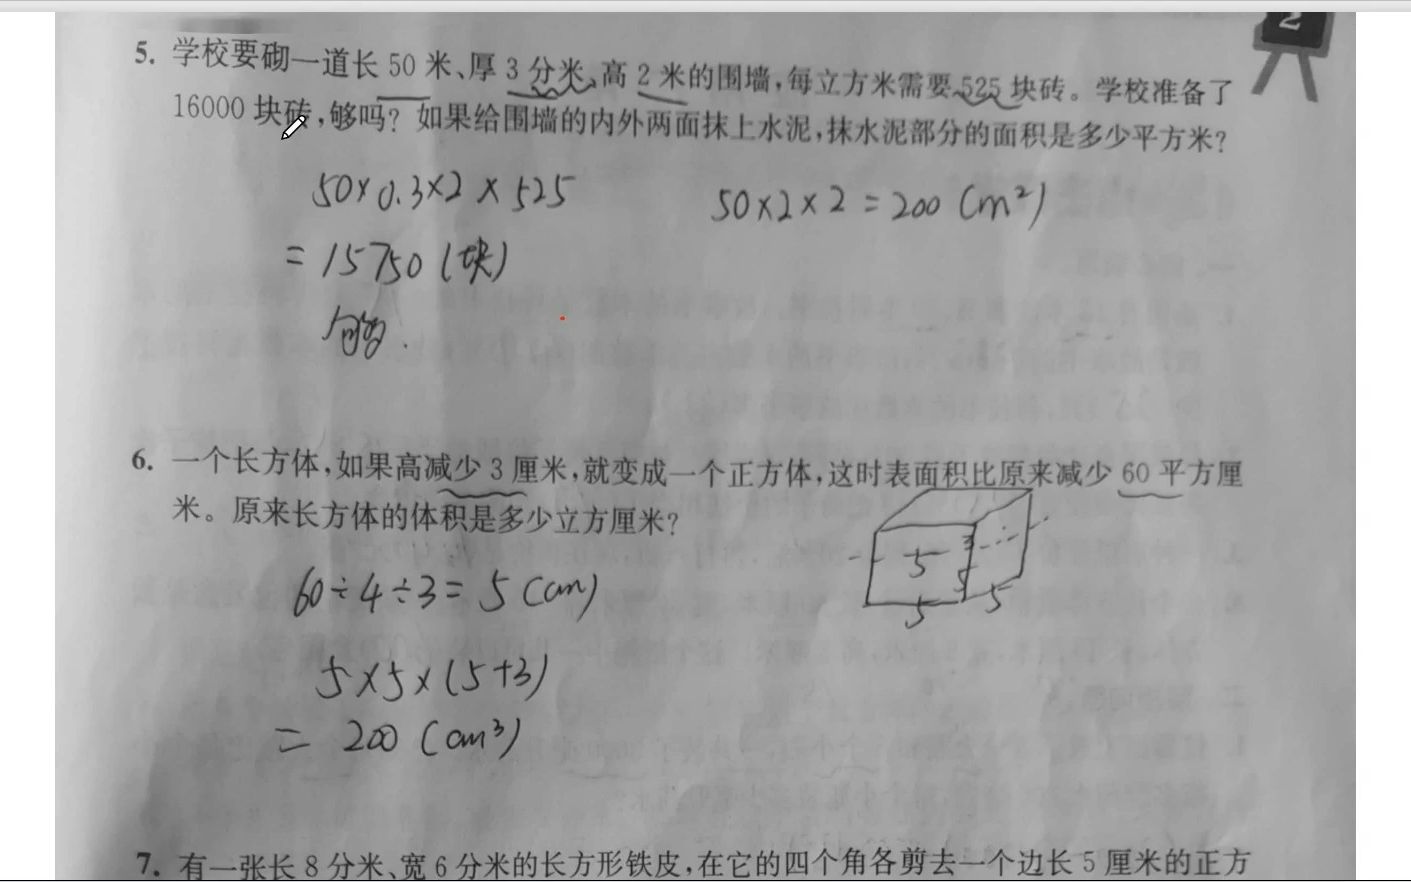 2
5. 学校要砌一道长 50 米、厚 3 分米、高 2 米的围墙,每立方米需要 525 块砖。学校准备了
16000 块砖,够吗?如果给围墙的内外两面抹上水泥,抹水泥部分的面积是多少平方米?
50×0.3×2×525
=15750(块)
够.
50×2×2=200(m²)
6. 一个长方体,如果高减少 3 厘米,就变成一个正方体,这时表面积比原来减少 60 平方厘
米。原来长方体的体积是多少立方厘米?
60÷4÷3=5(cm)
5×5×(5+3)
=200(cm³)
5
3
5
5
5
7. 有一张长 8 分米、宽 6 分米的长方形铁皮,在它的四个角各剪去一个边长 5 厘米的正方